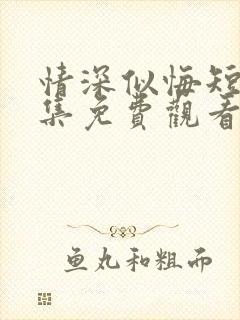 情深似悔短
集免費觀看
鱼丸和粗面